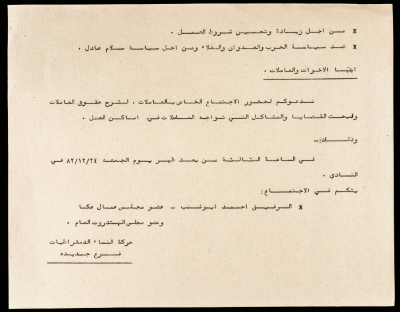 x من اجل زيادة وتحسين شروط العمل .
x ضد سياسة الحرب والعدوان والغلاء ومن اجل سياسة سلام عادل .
ايتها الاخوات والعاملات .
ندعوكم لحضور الاجتماع الخاص بالعاملات . لشرح حقوق العاملات
ولبحث القضايا والمشاكل التي تواجه العاملات في اماكن العمل .
وذلك :-
في الساعة الثالثة من بعد ظهر يوم الجمعة ٨٢/١٢/٢٤ في
النادي .
يتكلم في الاجتماع :
x الرفيق احمد ابوشنب - عضو مجلس عمال عكا
وعضو مجلس الهستدروت العام .
حركة النساء الدمقراطيات
فرع جديده